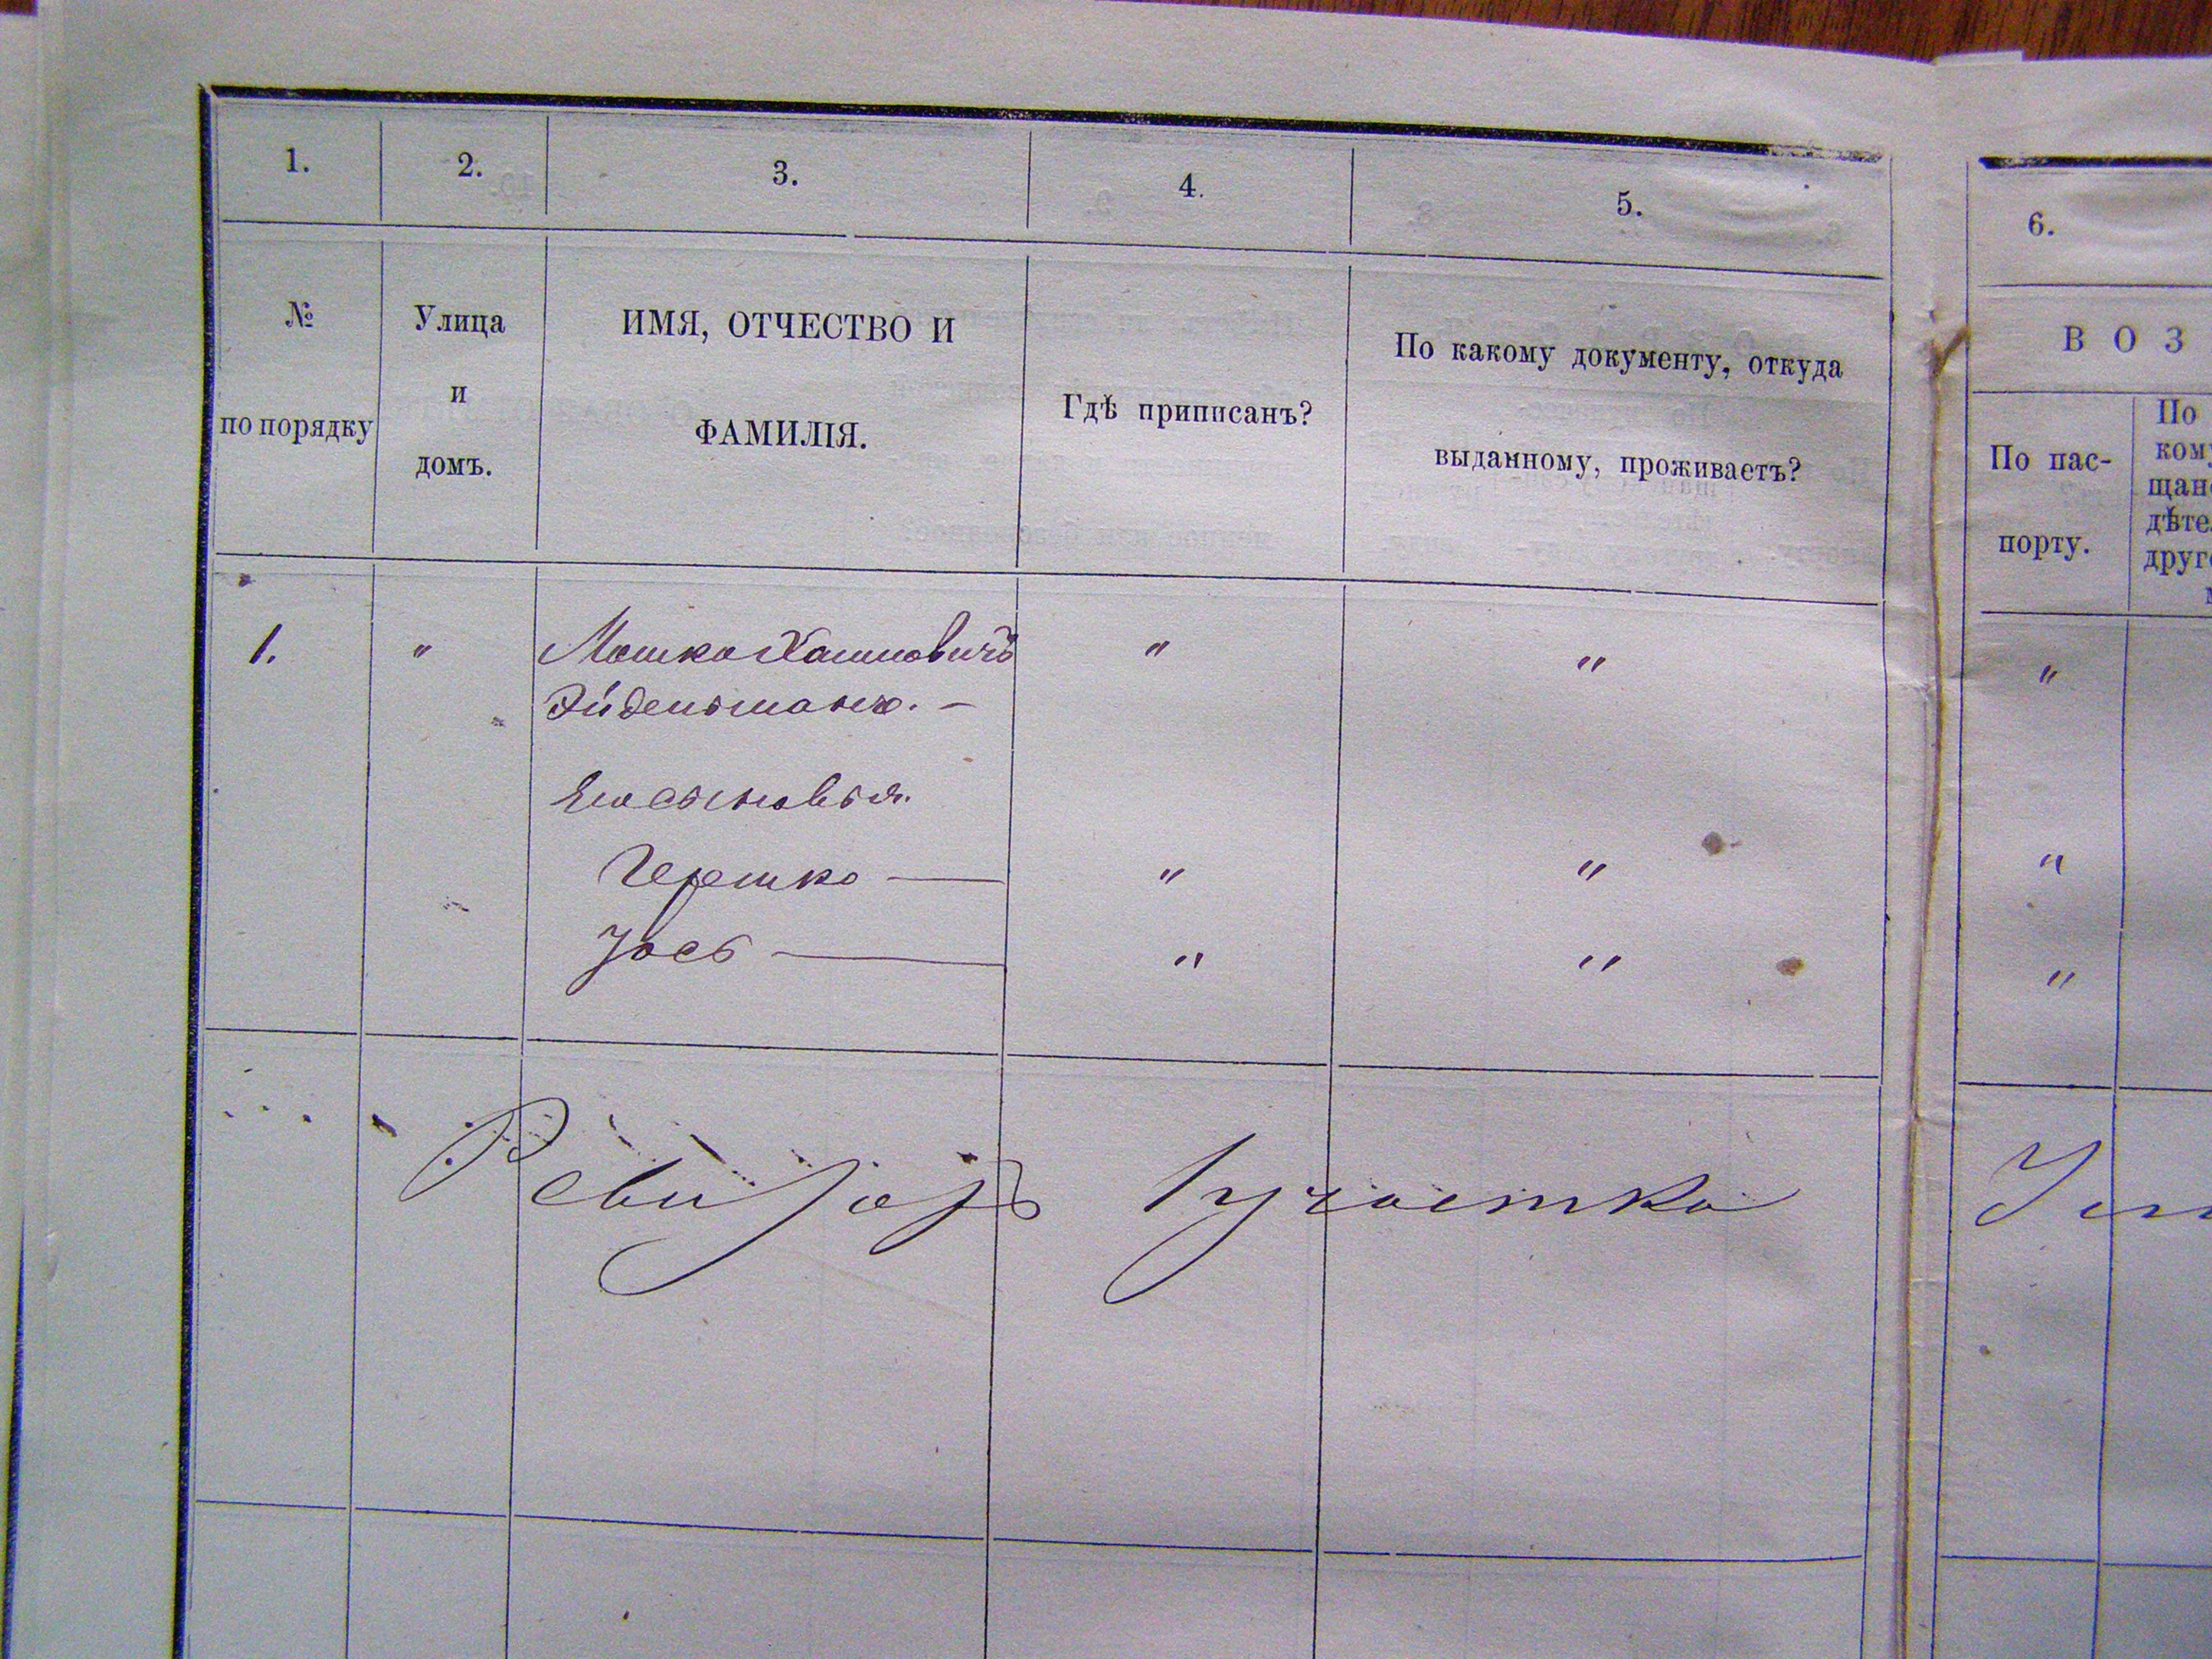 1. 2. 3. 4. 5. 6.
№ по порядку
Улица
и
домъ.
ИМЯ, ОТЧЕСТВО И
ФАМИЛІЯ.
Гдѣ приписанъ?
По какому документу, откуда
выданному, проживаетъ?
ВОЗ
По пас-
порту.
По
ком
щан
дѣте
друг
1. " Мошко Хаимовичъ " " "
Эйдельманъ. —
Его сыновья.
Гершко — " " "
Іось — " " "
Ревизоръ 1 участка